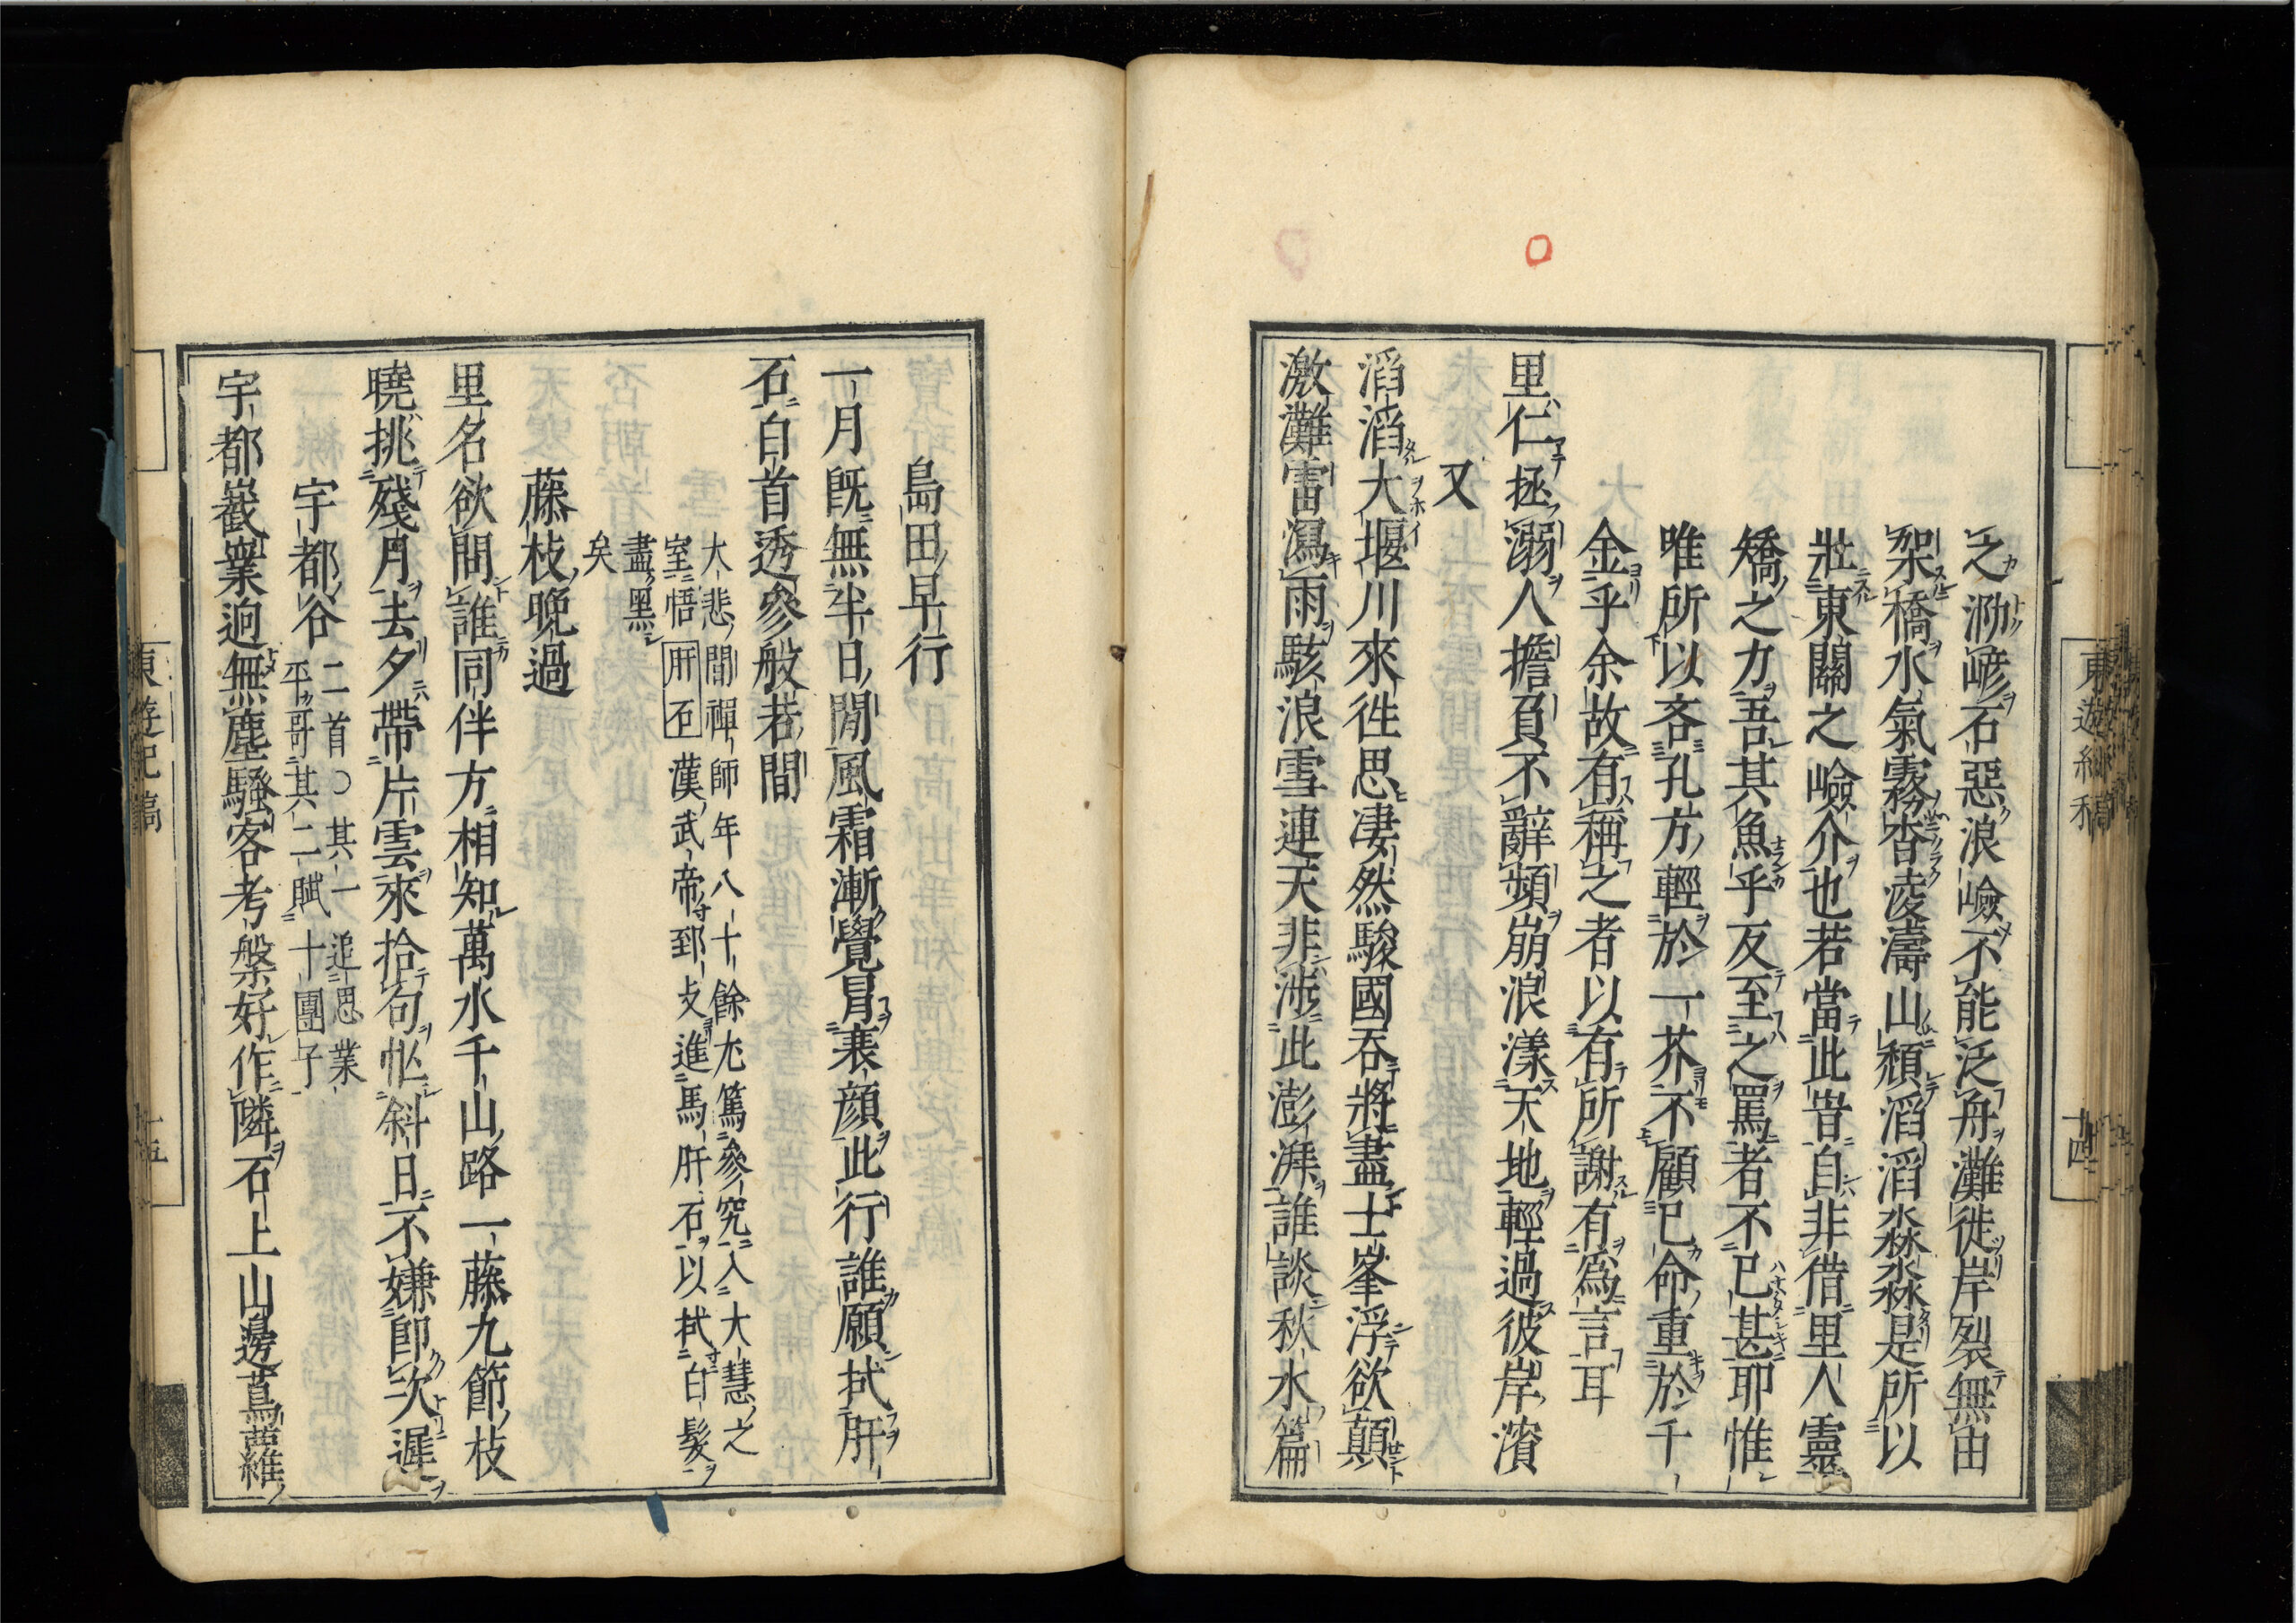 之泐㟁石惡浪嶮不能泛舟灘徙岸裂無由
架橋水氣霧杳凌濤山頹滔滔淼淼是所以
壯東關之嶮介也若當此旹自非借里人靈
矯之力吾其魚乎友至之罵者不已甚耶惟
唯所以吝孔方輕於一芥不顧已命重於千
金乎余故有稱之者以有所謝有爲言耳
里仁拯溺人擔負不辭頻崩浪漾天地輕過彼岸濱
又
滔滔大堰川來徃思凄然駿國吞將盡士峯浮欲顛
激灘雷瀉雨駭浪雪連天非涉此澎湃誰談秋水篇
東遊紀稿
十四
島田早行
一月旣無半日閒風霜漸覺冐衰顔此行誰願拭肝
石白首透參般若間
大悲閒禪師年八十餘尤篤參究入大慧之
室悟肝石漢武帝時郅支進馬肝石以拭白髮
盡黑
矣
藤枝晩過
里名欲問誰同伴方相知萬水千山路一藤九節枝
曉挑殘月去夕帶片雲來拾句忙斜日不嫌卽次遲
宇都谷
二首○其一追思業
平哥其二賦十團子
宇都巖嶪迥無塵騷客考槃好作隣石上山邊蔦蘿維
東遊紀稿
十五